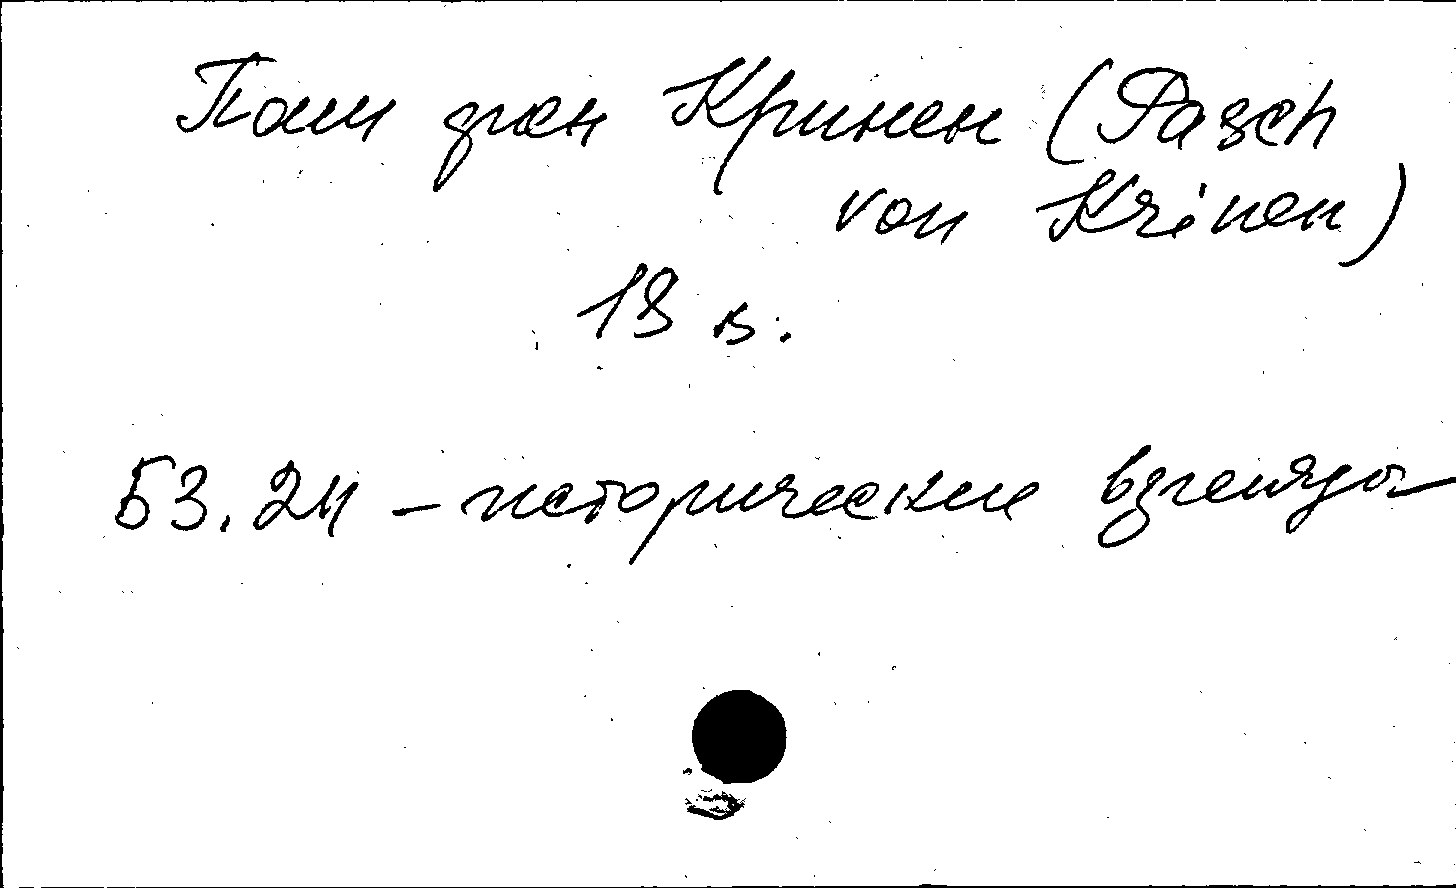 Паш фан Кринен (Pasch
von Krinen)
18 в.
53.24 - исторические взгляды